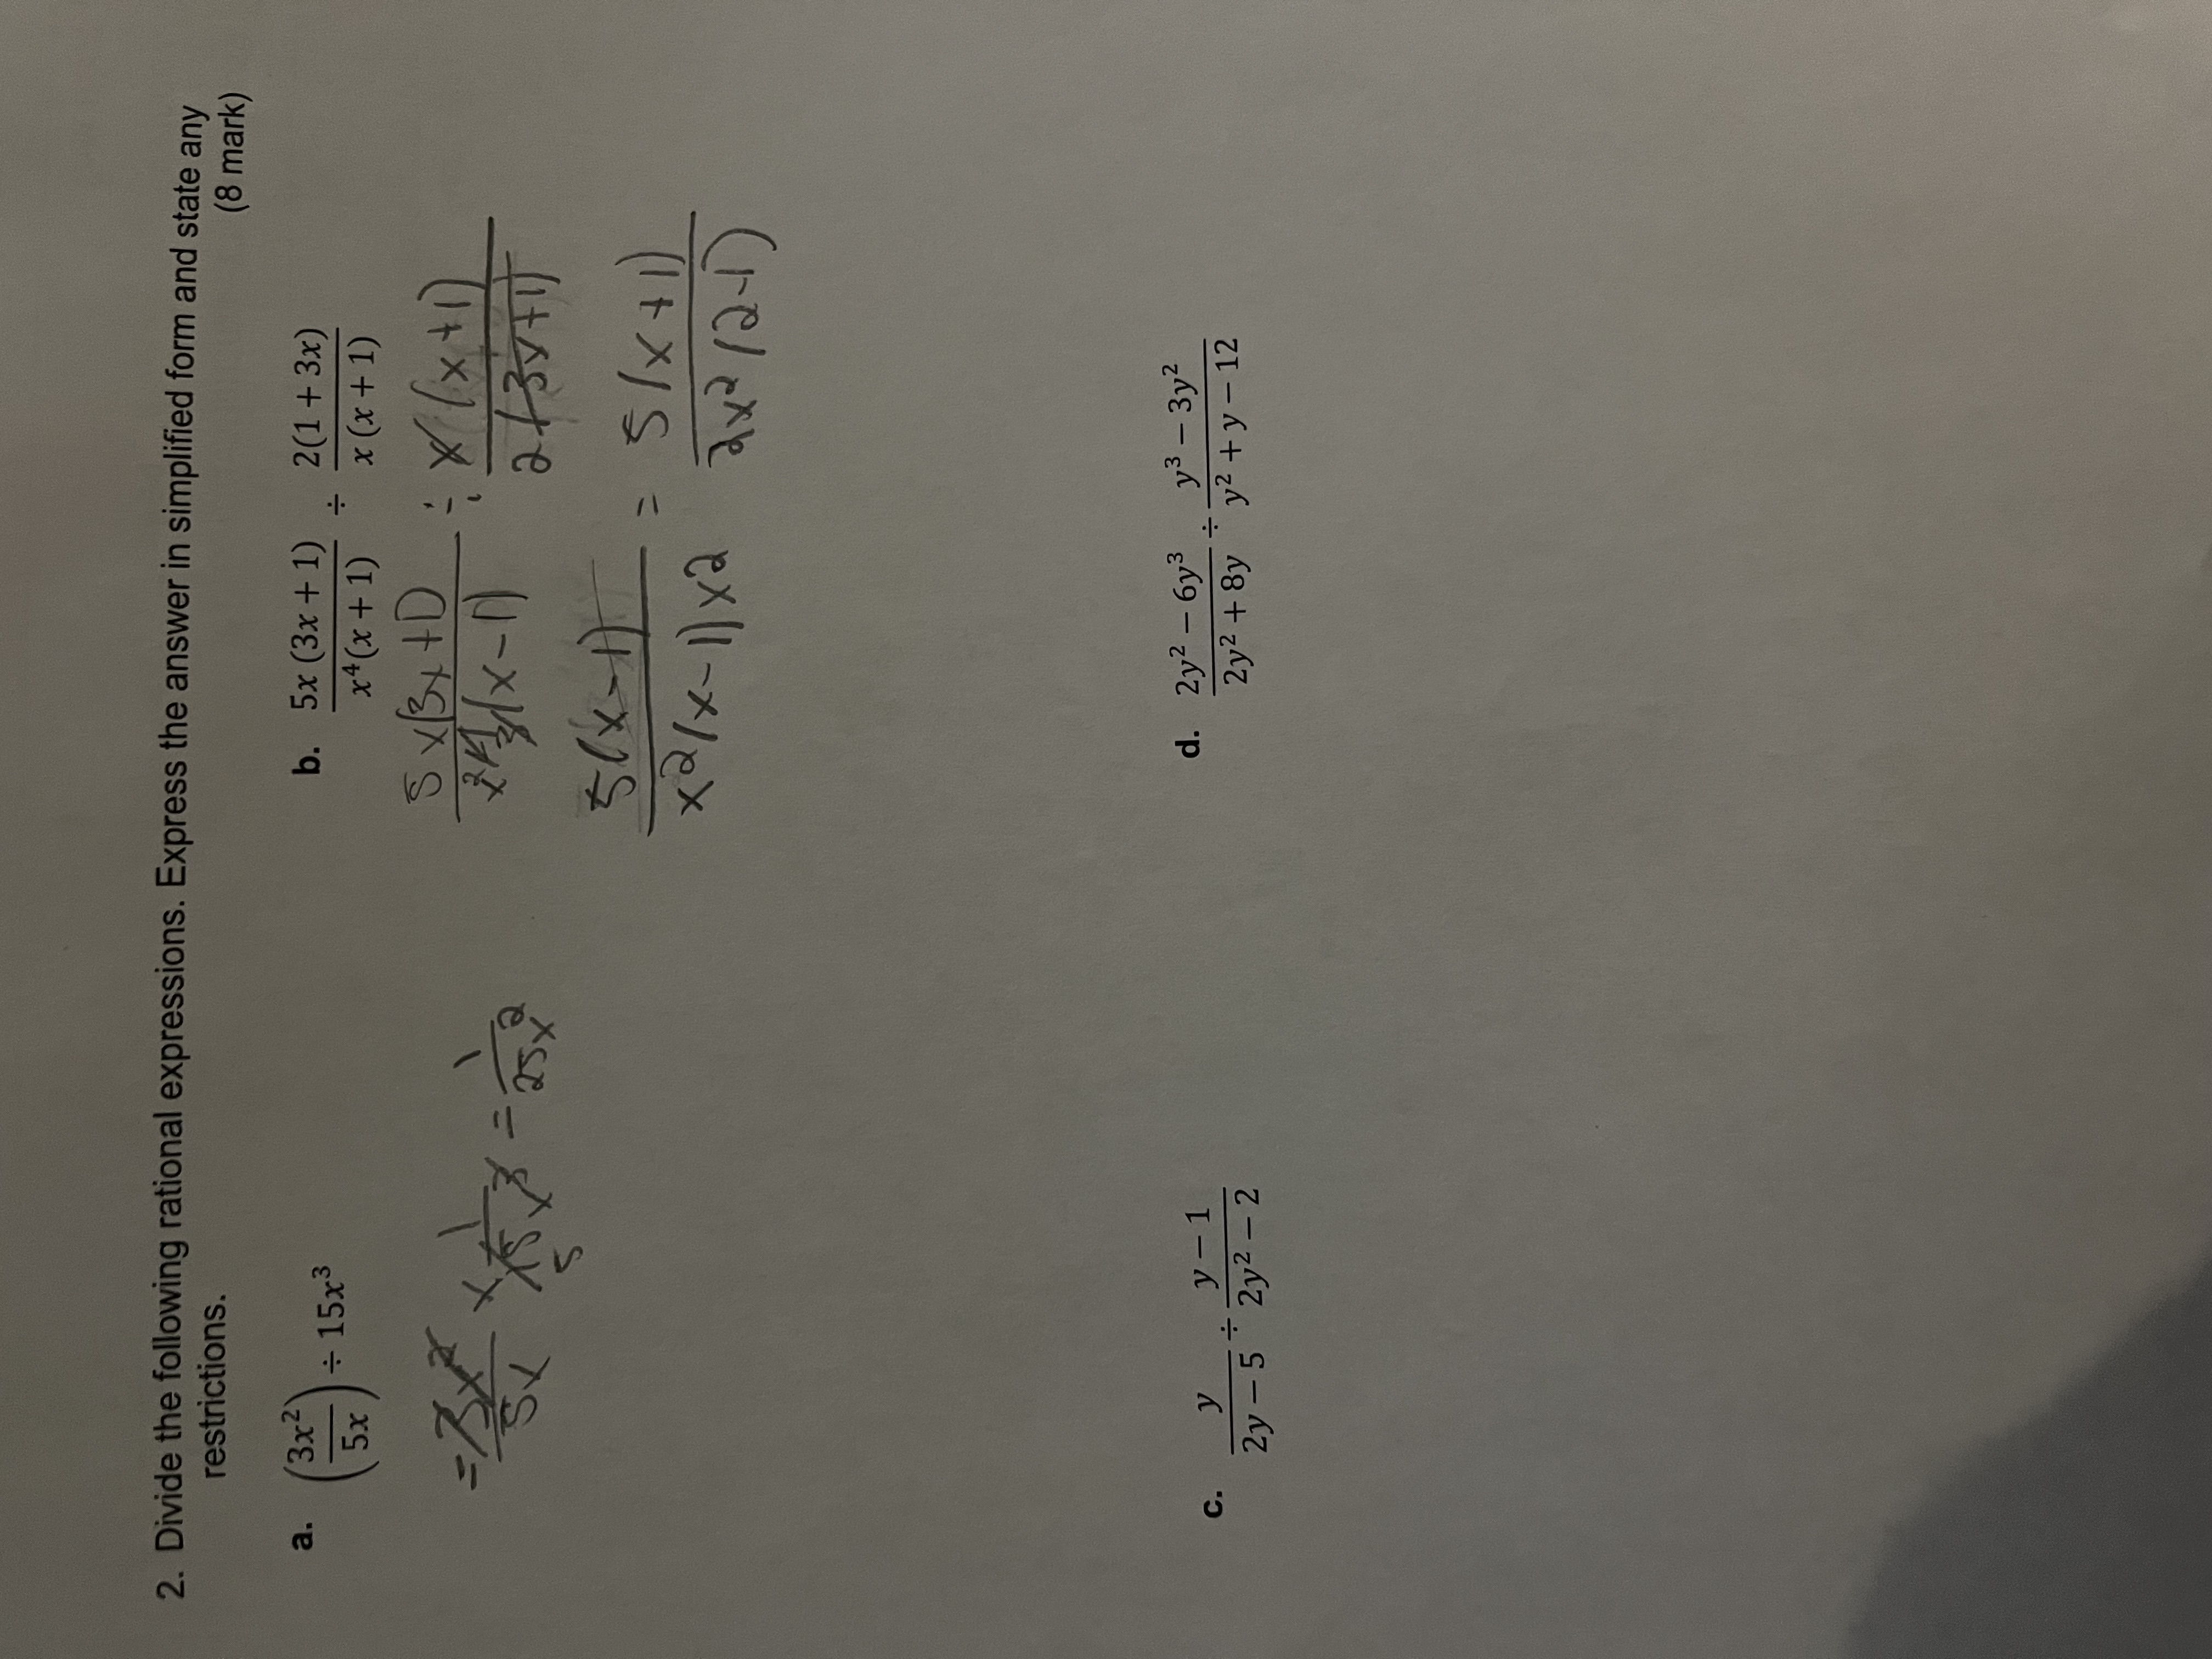 2. Divide the following rational expressions. Express the answer in simplified form and state any
restrictions. (8 mark)
a. (3x²/5x) ÷ 15x³
b. 5x (3x + 1)/x⁴(x + 1) ÷ 2(1 + 3x)/x (x + 1)
= 3x²/5x × 1/15x³ = 1/25x²
5
5x(3x+1)/(x-1) ÷ x(x+1)/2(3x+1)
5(x-1)/x2(x-1)x2 = 5(x+1)/2x2(2-1)
c. y/2y − 5 ÷ y − 1/2y² − 2
d. 2y² − 6y³/2y² + 8y ÷ y³ − 3y²/y² + y − 12